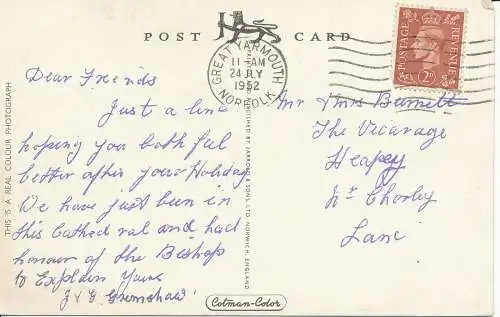 POST CARD
GREAT YARMOUTH
11 - AM
24 JLY
1952
NORFOLK
POSTAGE REVENUE
2D
THIS IS A REAL COLOUR PHOTOGRAPH
Dear Friends
Just a line
hoping you both feel
better after your Holiday
We have just been in
this Cathedral and had
honour of the Bishop
to Explain Yours
J & G Grimshaw
PUBLISHED BY JARROLD & SONS LTD. NORWICH, ENGLAND
Mr Mrs Burnett
The Vicarage
Heapey
Nr Chorley
Lanc
Cotman-Color